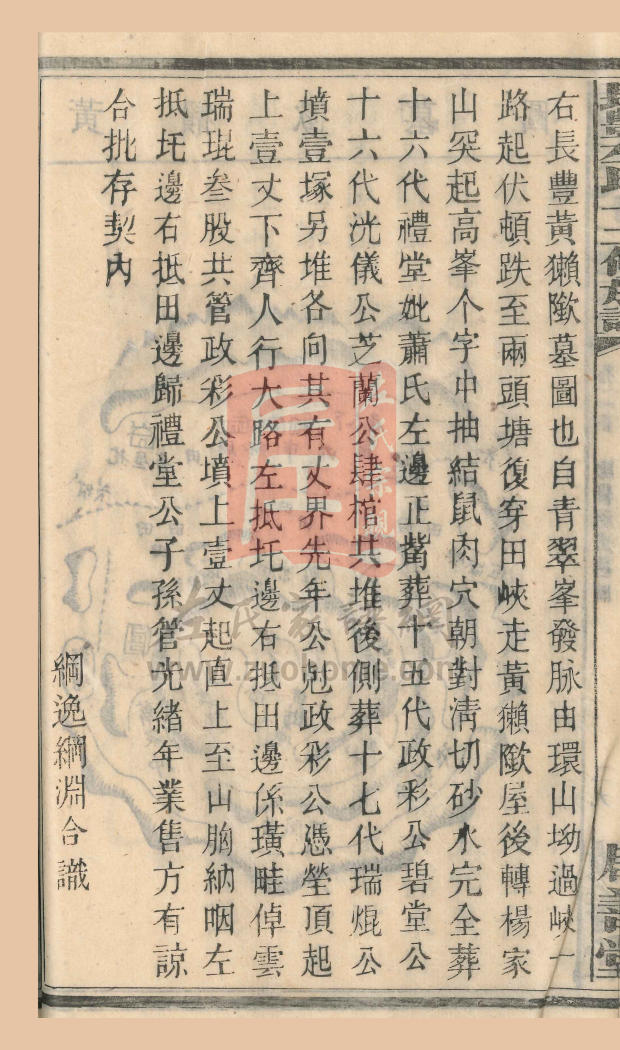 右長豐黃獺歞墓圖也自青翠峯發脉由環山坳過峽一
路起伏頓跌至兩頭塘復穿田峽走黃獺歞屋後轉楊家
山突起高峯个字中抽結鼠肉穴朝對清切砂水完全葬
十六代禮堂妣蕭氏左邊正葬十五代政彩公碧堂公
十六代洸儀公芝蘭公肆棺共堆後側葬十七代瑞焜公
墳壹塚另堆各向其有丈界先年公剋政彩公憑塋頂起
上壹丈下齊人行大路左抵圫邊右抵田邊係璜畦倬雲
瑞琨叁股共管政彩公墳上壹丈起直上至山胸納咽左
抵圫邊右抵田邊歸禮堂公子孫管光緒年業售方有諒
合批存契內
綱逸綱淵合識
左氏家譜網
www.zuohome.com